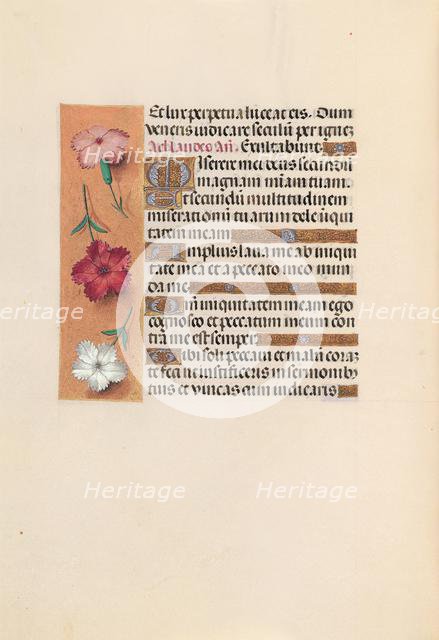 Et lux perpetua luceat eis. Dum
veneris iudicare seculū per ignez
Ad laudes Añ. Exultabunt
Miserere mei deus secundū
magnam miām tuam.
Et secundū multitudinem
miserationū tuarum dele iniqui
tatem meam
Amplius laua me ab iniqui
tate mea et a peccato meo mun
da me
Quoniā iniquitatem meam ego
cognosco et peccatum meum con
tra me est semper
Tibi soli peccaui et malū coraz
te feci ut iustificeris in sermonibz
tuis et vincas cum iudicaris
Heritage
Heritage
Heritage
Heritage
Heritage
Heritage